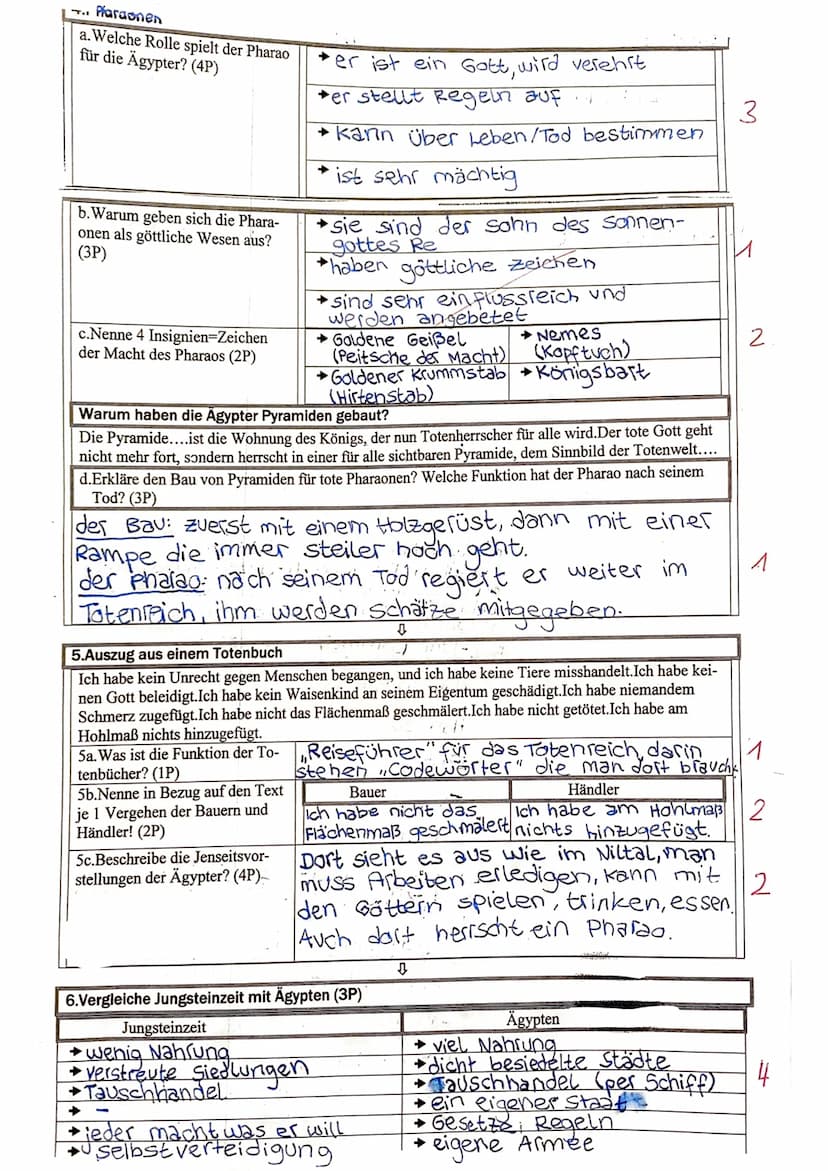 4. Pharaonen
a.Welche Rolle spielt der Pharao
für die Ägypter? (4P)
→ er ist ein Gott, wird verehrt
→ er stellt Regeln auf
→ kann über Leben/Tod bestimmen
→ ist sehr mächtig
3
b.Warum geben sich die Phara-
onen als göttliche Wesen aus?
(3P)
→ sie sind der Sohn des Sonnen-
gottes Re
→ haben göttliche Zeichen
→ sind sehr einflussreich und
werden angebetet
1
c.Nenne 4 Insignien=Zeichen
der Macht des Pharaos (2P)
→ Goldene Geißel
(Peitsche der Macht)
→ Nemes
(Kopftuch)
→ Goldener Krummstab
(Hirtenstab)
→ Königsbart
2
Warum haben die Ägypter Pyramiden gebaut?
Die Pyramide….ist die Wohnung des Königs, der nun Totenherrscher für alle wird.Der tote Gott geht
nicht mehr fort, sondern herrscht in einer für alle sichtbaren Pyramide, dem Sinnbild der Totenwelt….
d.Erkläre den Bau von Pyramiden für tote Pharaonen? Welche Funktion hat der Pharao nach seinem
Tod? (3P)
der Bau: zuerst mit einem Holzgerüst, dann mit einer
Rampe die immer steiler hoch geht.
der Pharao: nach seinem Tod regiert er weiter im
Totenreich, ihm werden Schätze mitgegeben.
1
5.Auszug aus einem Totenbuch
Ich habe kein Unrecht gegen Menschen begangen, und ich habe keine Tiere misshandelt.Ich habe kei-
nen Gott beleidigt.Ich habe kein Waisenkind an seinem Eigentum geschädigt.Ich habe niemandem
Schmerz zugefügt.Ich habe nicht das Flächenmaß geschmälert.Ich habe nicht getötet.Ich habe am
Hohlmaß nichts hinzugefügt.
5a.Was ist die Funktion der To-
tenbücher? (1P)
„Reiseführer" für das Totenreich, darin
stehen „Codewörter" die man dort braucht
1
5b.Nenne in Bezug auf den Text
je 1 Vergehen der Bauern und
Händler! (2P)
Bauer
Ich habe nicht das
Flächenmaß geschmälert
Händler
Ich habe am Hohlmaß
nichts hinzugefügt.
2
5c.Beschreibe die Jenseitsvor-
stellungen der Ägypter? (4P)
Dort sieht es aus wie im Niltal, man
muss Arbeiten erledigen, kann mit
den Göttern spielen, trinken, essen.
Auch dort herrscht ein Pharao.
2
6.Vergleiche Jungsteinzeit mit Ägypten (3P)
Jungsteinzeit
Ägypten
→ wenig Nahrung
→ viel Nahrung
→ verstreute Siedlungen
→ dicht besiedelte Städte
→ Tauschhandel
→ Tauschhandel (per Schiff)
→ –
→ ein eigener Staat
→ jeder macht was er will
→ Gesetze, Regeln
→ Selbstverteidigung
→ eigene Armee
4